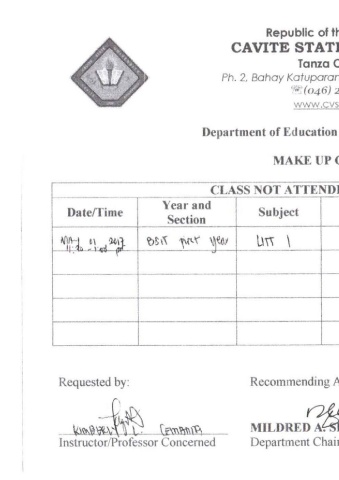 Republic of th
CAVITE STATE
Tanza C
Ph. 2, Bahay Katuparan
(046) 2
www.cvs
Department of Education
MAKE UP C
CLASS NOT ATTENDE
Date/Time
Year and
Section
Subject
01 2017
BSIT first year
LITT 1
Requested by:
Recommending A
KIMBERLY L.
Instructor/Professor Concerned
MILDRED A. S
Department Chair